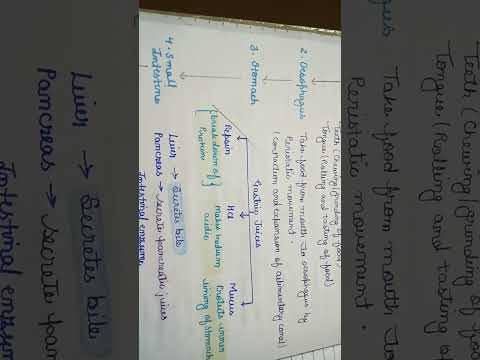 Teeth (Chewing/grinding of food)
Tongue (Rolling and tasting of food)
2. Oesophagus Take food from mouth to oesophagus by
Peristatic movement.
(contraction and expansion of alimentary canal)
3. Stomach Gastric Juices
Pepsin HCl Mucus
(breakdown of Makes medium Protects inner
Protein) acidic lining of stomach
4. Small Liver → Secretes bile
Intestine Pancreas → Secrete pancreatic juices
Intestinal enzyme
Teeth (Chewing/grinding of
Tongue (Rolling and tasting
Take food from mouth to
Peristatic movement.
Liver → Secretes bile
Pancreas → Secrete pan
Intestinal enzym